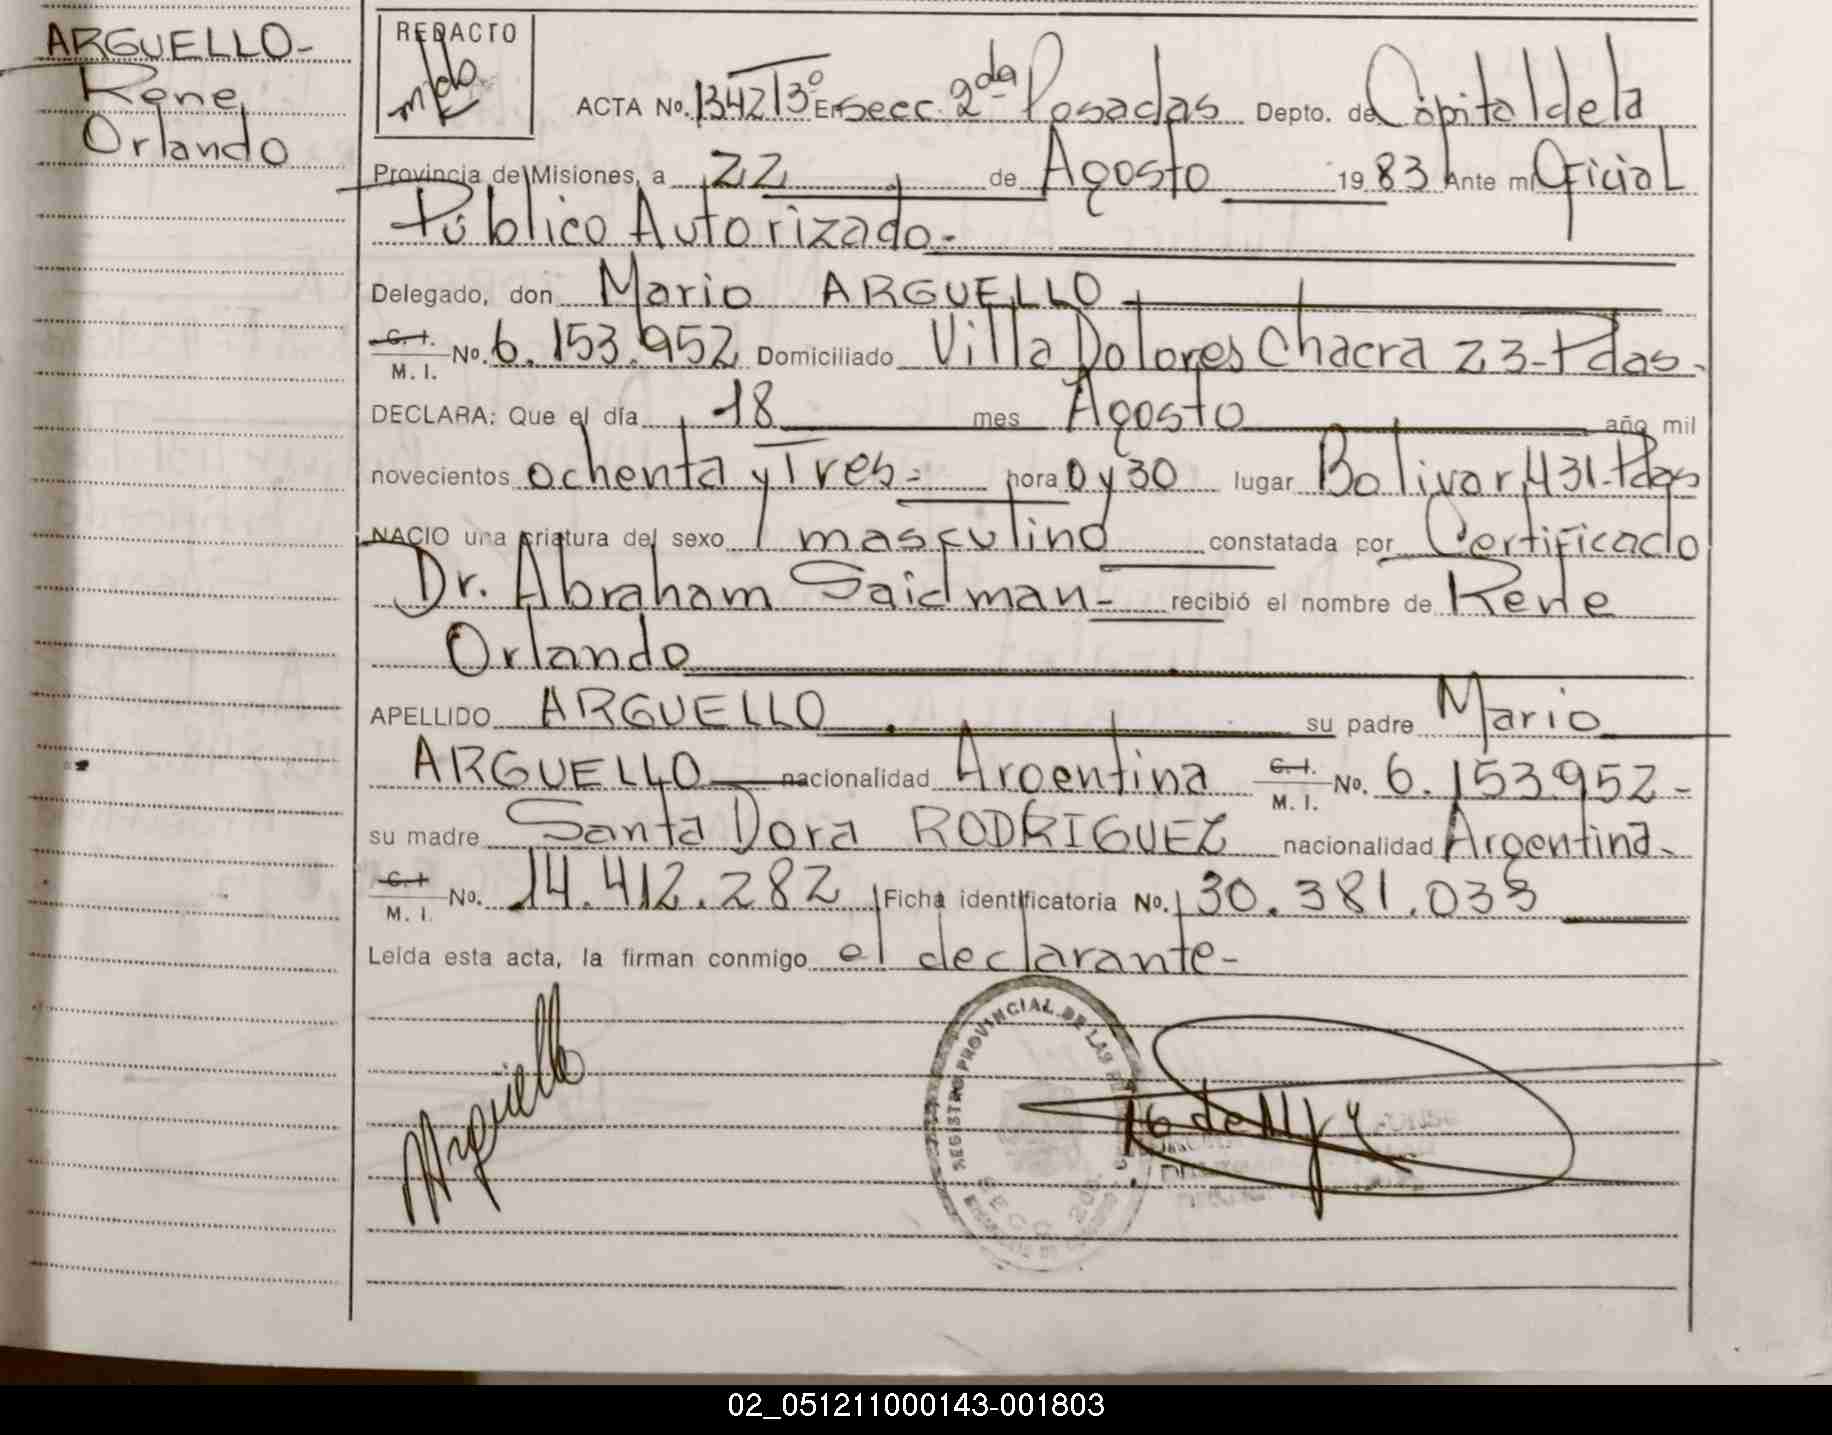 ARGUELLO-
Rene
Orlando
REDACTO
ACTA No. 1342 T3º En secc. 2da Posadas Depto. de Capital de la
Provincia de Misiones, a 22 de Agosto 1983 Ante mi Oficial
Público Autorizado.-
Delegado, don Mario ARGUELLO
C. I.
M. I. No. 6.153.952 Domiciliado Villa Dolores Chacra 23-Pdas.
DECLARA: Que el día 18 mes Agosto año mil
novecientos ochenta y Tres.- hora 0 y 30 lugar Bolivar 431-Pdas
NACIO una criatura del sexo masculino constatada por Certificado
Dr. Abraham Saidman- recibió el nombre de Rene
Orlando
APELLIDO ARGUELLO su padre Mario
ARGUELLO nacionalidad Argentina C. I.
M. I. No. 6.153952-
su madre Santa Dora RODRIGUEZ nacionalidad Argentina-
C. I
M. I. No. 14.412.282 Ficha identificatoria No. 30.381.033
Leída esta acta, la firman conmigo el declarante-
Arguello
REGISTRO PROVINCIAL DE LAS
SECC. 2da
02_051211000143-001803